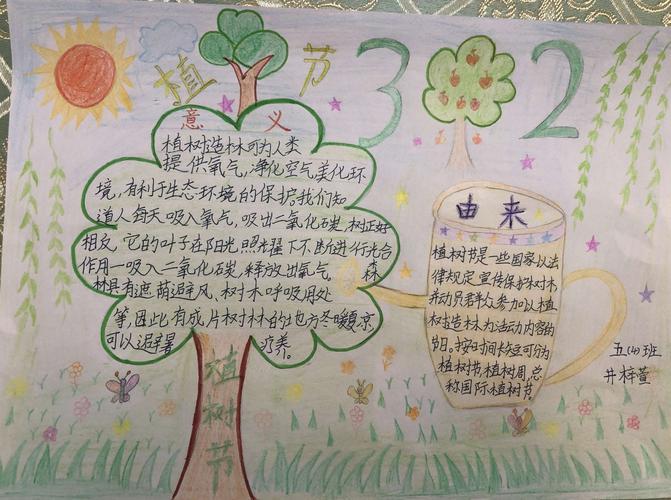 植 节
3 2
意 义
植树造林可为人类
提供氧气,净化空气美化环
境,有利于生态环境的保护。我们知
道人每天吸入氧气,吸出二氧化碳,树正好
相反,它的叶子在阳光照耀下不断进行光合
作用一吸入二氧化碳,释放出氧气。森
林具有遮荫避风、树木呼吸用处
等,因此有成片树林的地方冬暖夏凉,
可以避暑 疗养。
植
树
节
由来
植树节是一些国家以法
律规定宣传保护树木,
并动员群众参加以植
树造林为活动内容的
节日。按时间长短可分为
植树节植树周,总
称国际植树节
五(4)班
井梓萱